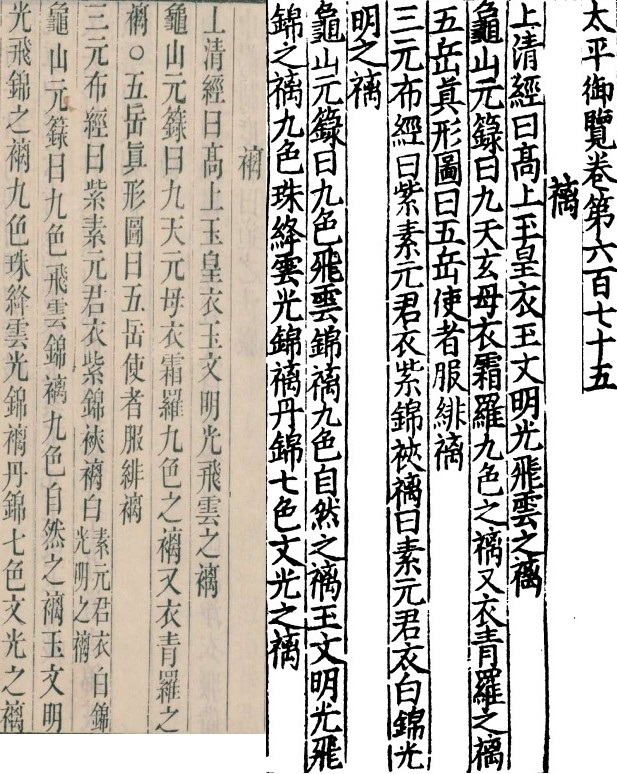 太平御覽卷第六百七十五
褵
上清經曰髙上王皇衣王文明光飛雲之褵
龜山元籙曰九天玄母衣霜羅九色之褵又衣青羅之褵
五岳真形圖曰五岳使者服緋褵
三元布經曰紫素元君衣紫錦裌褵曰素元君衣白錦光
明之褵
龜山元籙曰九色飛雲錦褵九色自然之褵王文明光飛
錦之褵九色珠絳雲光錦褵丹錦七色文光之褵
褵
上清經曰髙上玉皇衣玉文明光飛雲之褵
龜山元籙曰九天元母衣霜羅九色之褵又衣青羅之
褵○五岳眞形圖曰五岳使者服緋褵
三元布經曰紫素元君衣紫錦裌褵白素元君衣白錦光明之褵
龜山元籙曰九色飛雲錦褵九色自然之褵玉文明
光飛錦之褵九色珠絳雲光錦褵丹錦七色文光之褵